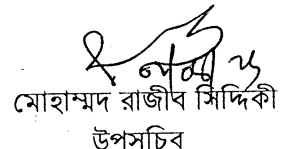 মোহাম্মদ রাজীব সিদ্দিকী
উপসচিব